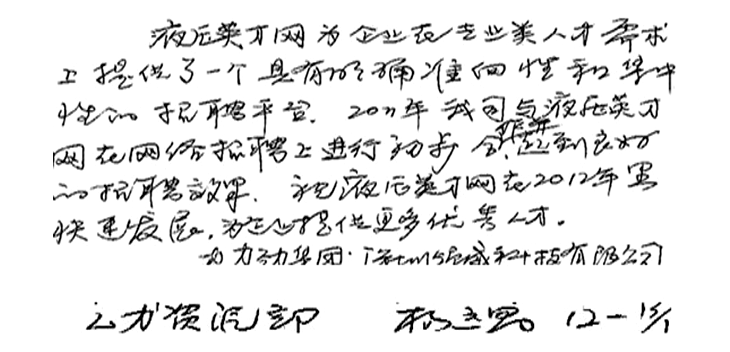 液压英才网为企业在专业类人才需求
上提供了一个具有明确准向性和集中
性的招聘平台. 2011年我司与液压英才
网在网络招聘上进行初步合作,起到良好
的招聘效果. 祝液压英才网在2012年更
快速发展,为企业提供更多优秀人才。
力集团·科技有限公司
人力资源部 杨